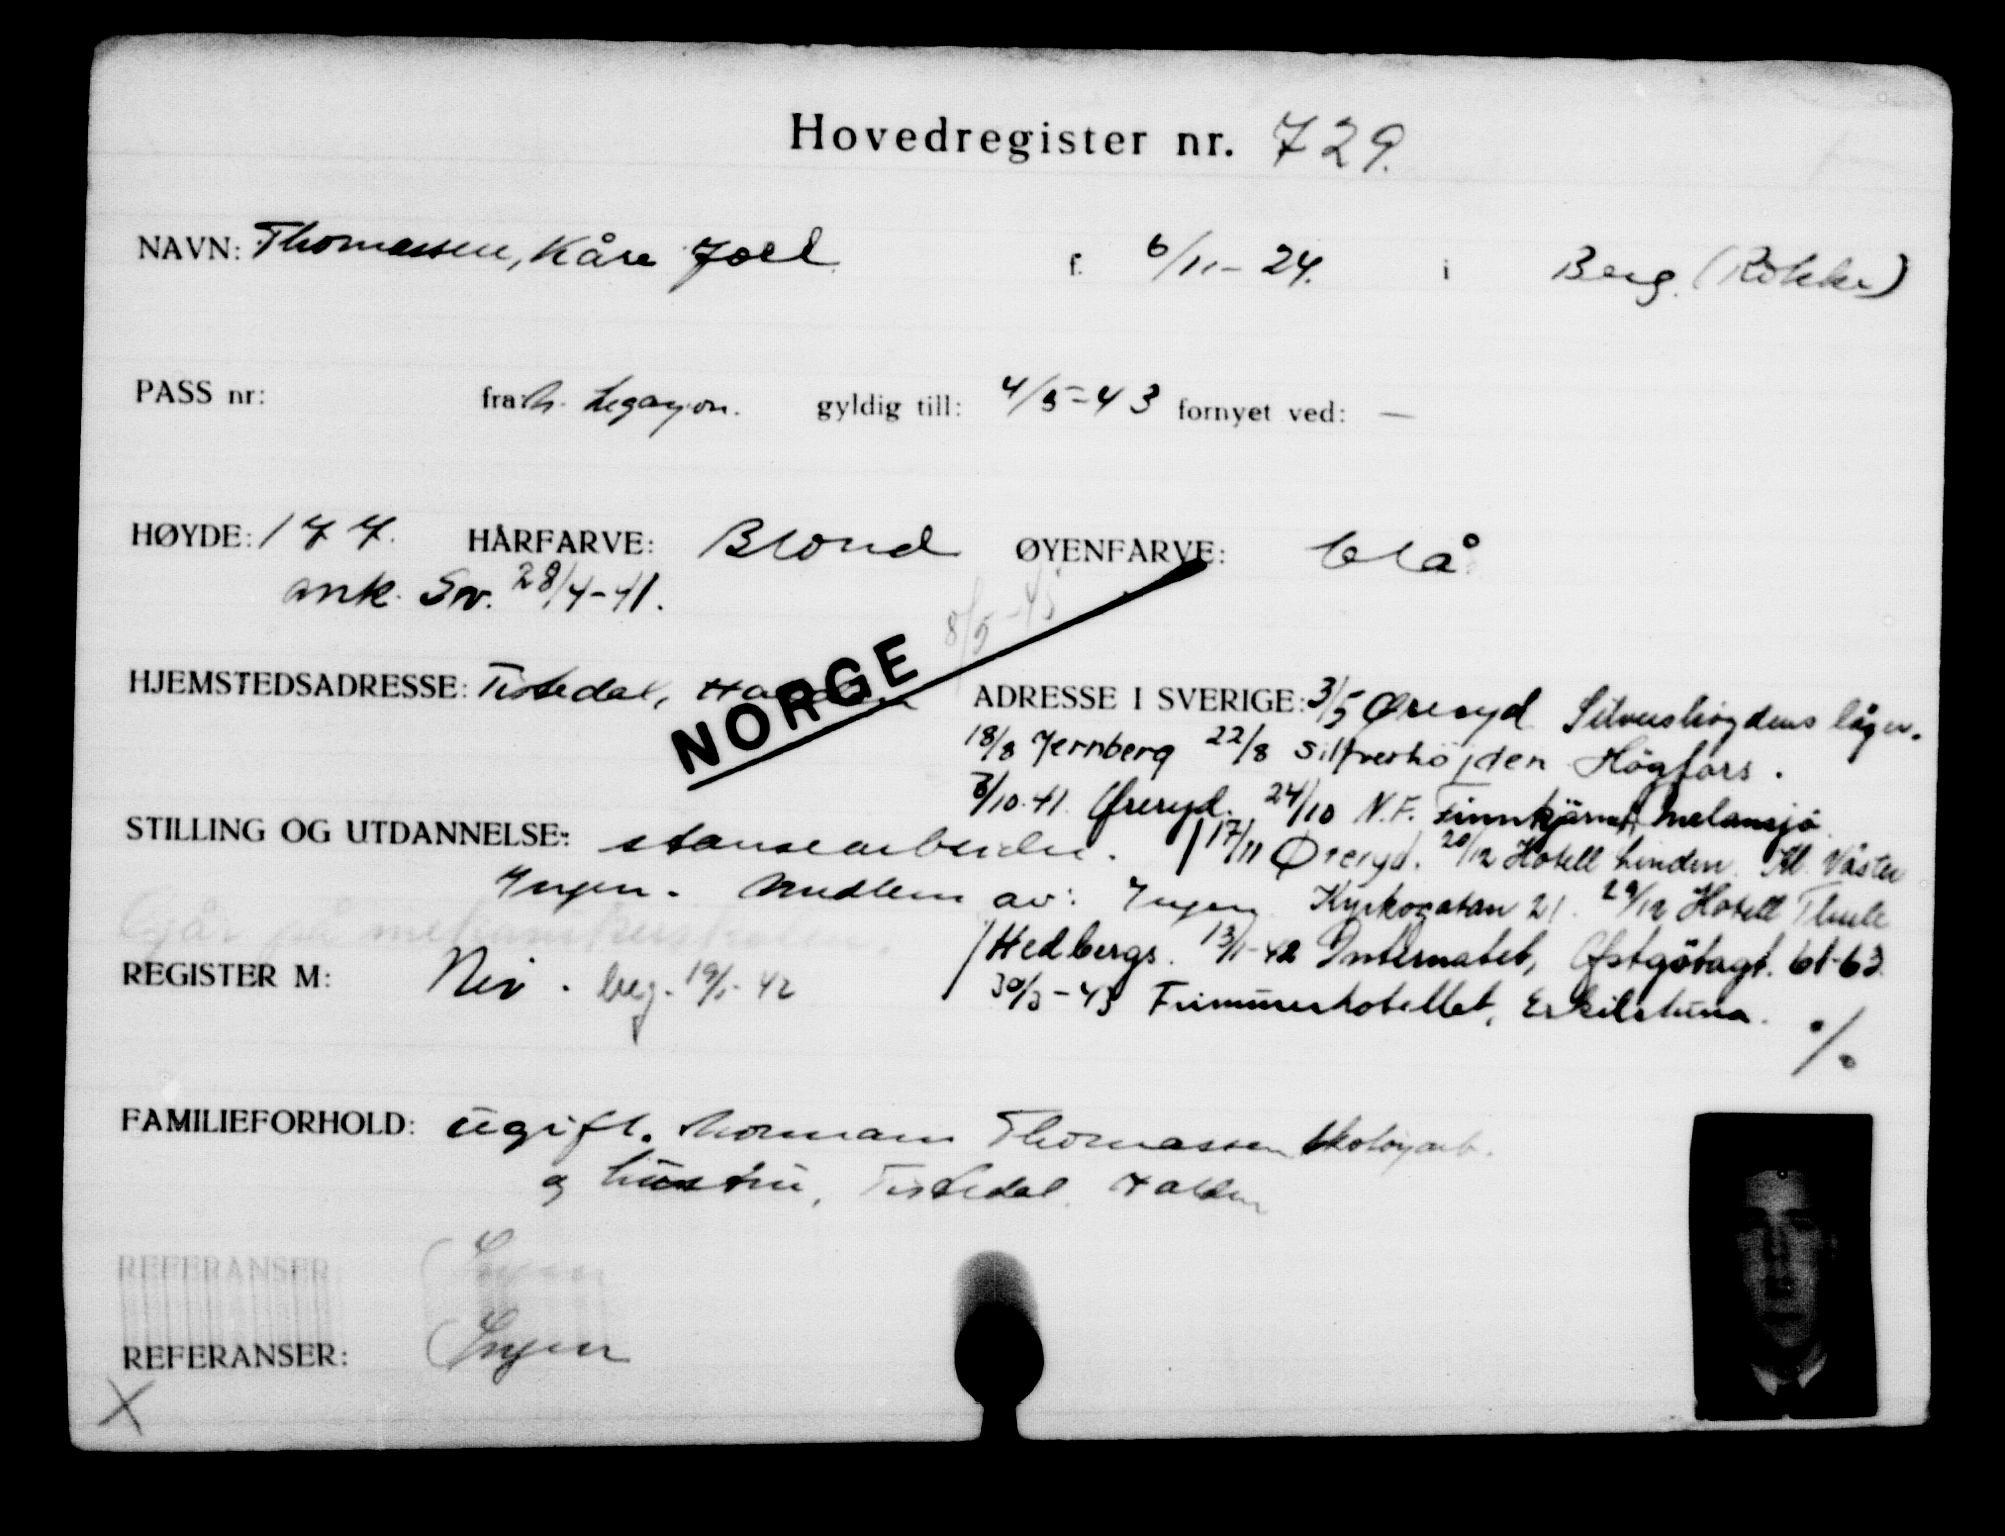 Hovedregister nr. 729.
NAVN: Thomassen, Kåre Joel f. 6/11-24. i Berg. (Rokke)
PASS nr: fra: N. Legasjon. gyldig till: 4/5-43 fornyet ved: —
HØYDE: 177. HÅRFARVE: Blond ØYENFARVE: blå
ank. Sv. 28/4-41.
8/5-45
NORGE
HJEMSTEDSADRESSE: Tistedal, Halden
ADRESSE I SVERIGE: 3/5 Øreryd Silvershøgdens låger.
18/8 Jernberg 22/8 Silfverhöjden Högfors.
3/10-41. Øreryd. 24/10 N.F. Finnkjärnet, Melansjø
STILLING OG UTDANNELSE: stansearbeider. 17/11 Øreryd. 20/12 Hotell Linden. Kl. Väster
Ingen. Medlem av: Ingen Kyrkogatan 21. 29/12 Hotell Thule
Går på mekanikerskolen.
Hedbergs. 13/1-42 Internatet, Østgötagt. 61-63.
REGISTER M: Nei. beg. 19/1-42
30/3-43 Frimurerhotellet, Eskilstuna. %
FAMILIEFORHOLD: ugift. Normann Thomassen skotøyarb.
og hustru, Tistedal. Halden
REFERANSER: Ingen
REFERANSER: Ingen
X